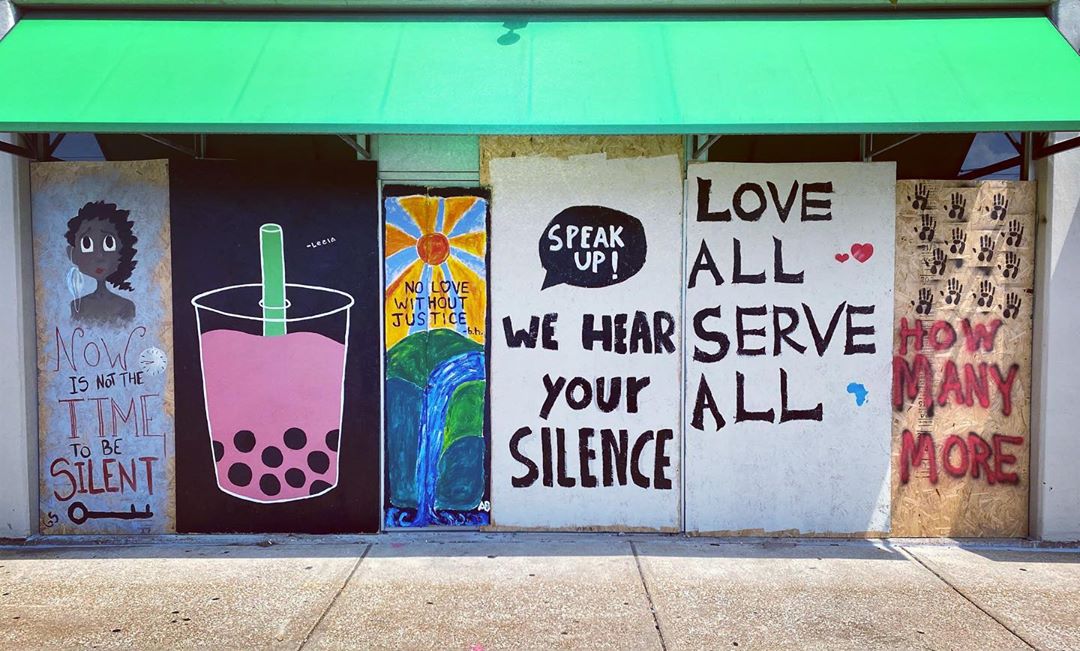 NOW
IS NOT THE
TIME
TO BE
SILENT
GS
-Leela
NO LOVE
WITHOUT
JUSTICE
-b.h.
AD
SPEAK
UP!
WE HEAR
your
SILENCE
LOVE
ALL
SERVE
ALL
HOW
MANY
MORE